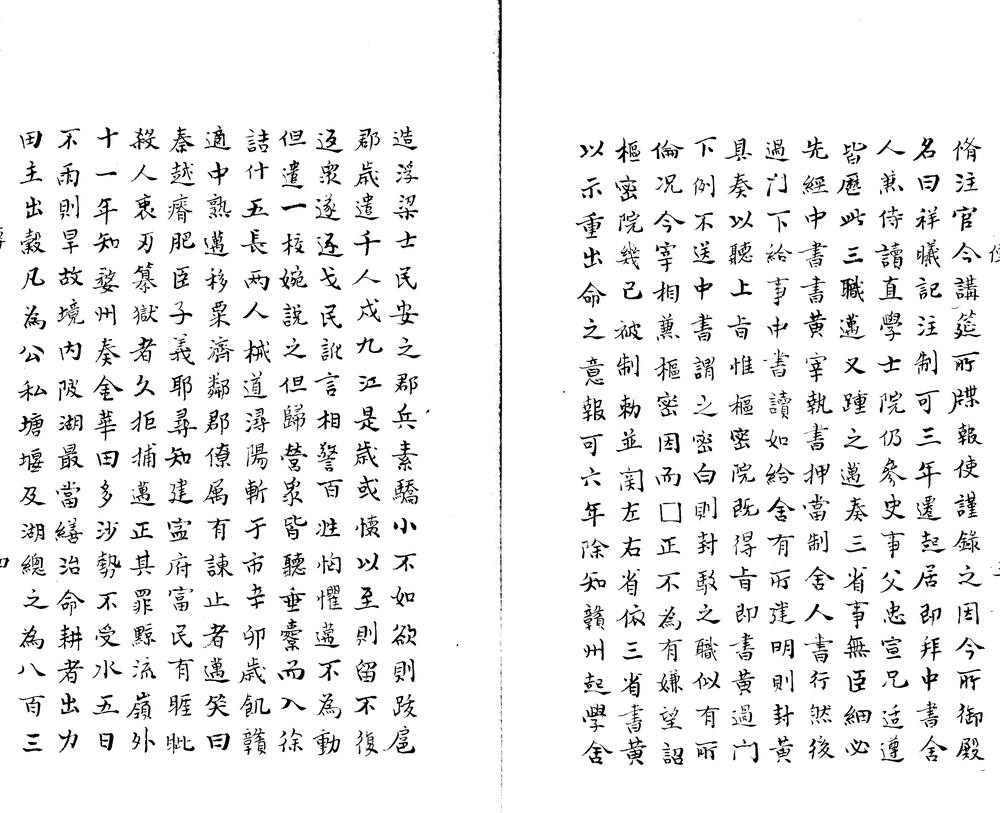 脩注官今講筵所牒報使謹錄之因今所御殿
名曰祥曦記注制可三年遷起居郎拜中書舍
人兼侍讀直學士院仍參史事父忠宣兄适遵
皆歷此三職邁又踵之邁奏三省事無臣細必
先經中書書黃宰執書押當制舍人書行然後
過门下給事中書讀如給舍有所建明則封黃
具奏以聽上旨惟樞密院既得旨即書黃過门
下例不送中書謂之密白則封駁之職似有所
倫况今宰相兼樞密因而□正不為有嫌望詔
樞密院幾已被制勅並関左右省依三省書黃
以示重出命之意報可六年除知贛州起學舍
造浮梁士民安之郡兵素驕小不如欲則跋扈
郡歲遣千人戍九江是歲或懐以至則留不復
返眾遂逐戈民訛言相驚百姓恟懼邁不為動
但遣一校婉說之但歸營眾皆聽垂橐而入徐
詰什五長兩人械道潯陽斬于市辛卯歲飢贛
適中熟邁移粟濟鄰郡僚属有諫止者邁笑曰
秦越瘠肥臣子義耶尋知建寍府富民有睚眦
殺人衷刃篡獄者久拒捕邁正其罪黥流嶺外
十一年知婺州奏金華田多沙勢不受水五日
不雨則旱故境内陂湖最當繕治命耕者出力
田主出穀凡為公私塘堰及湖總之為八百三